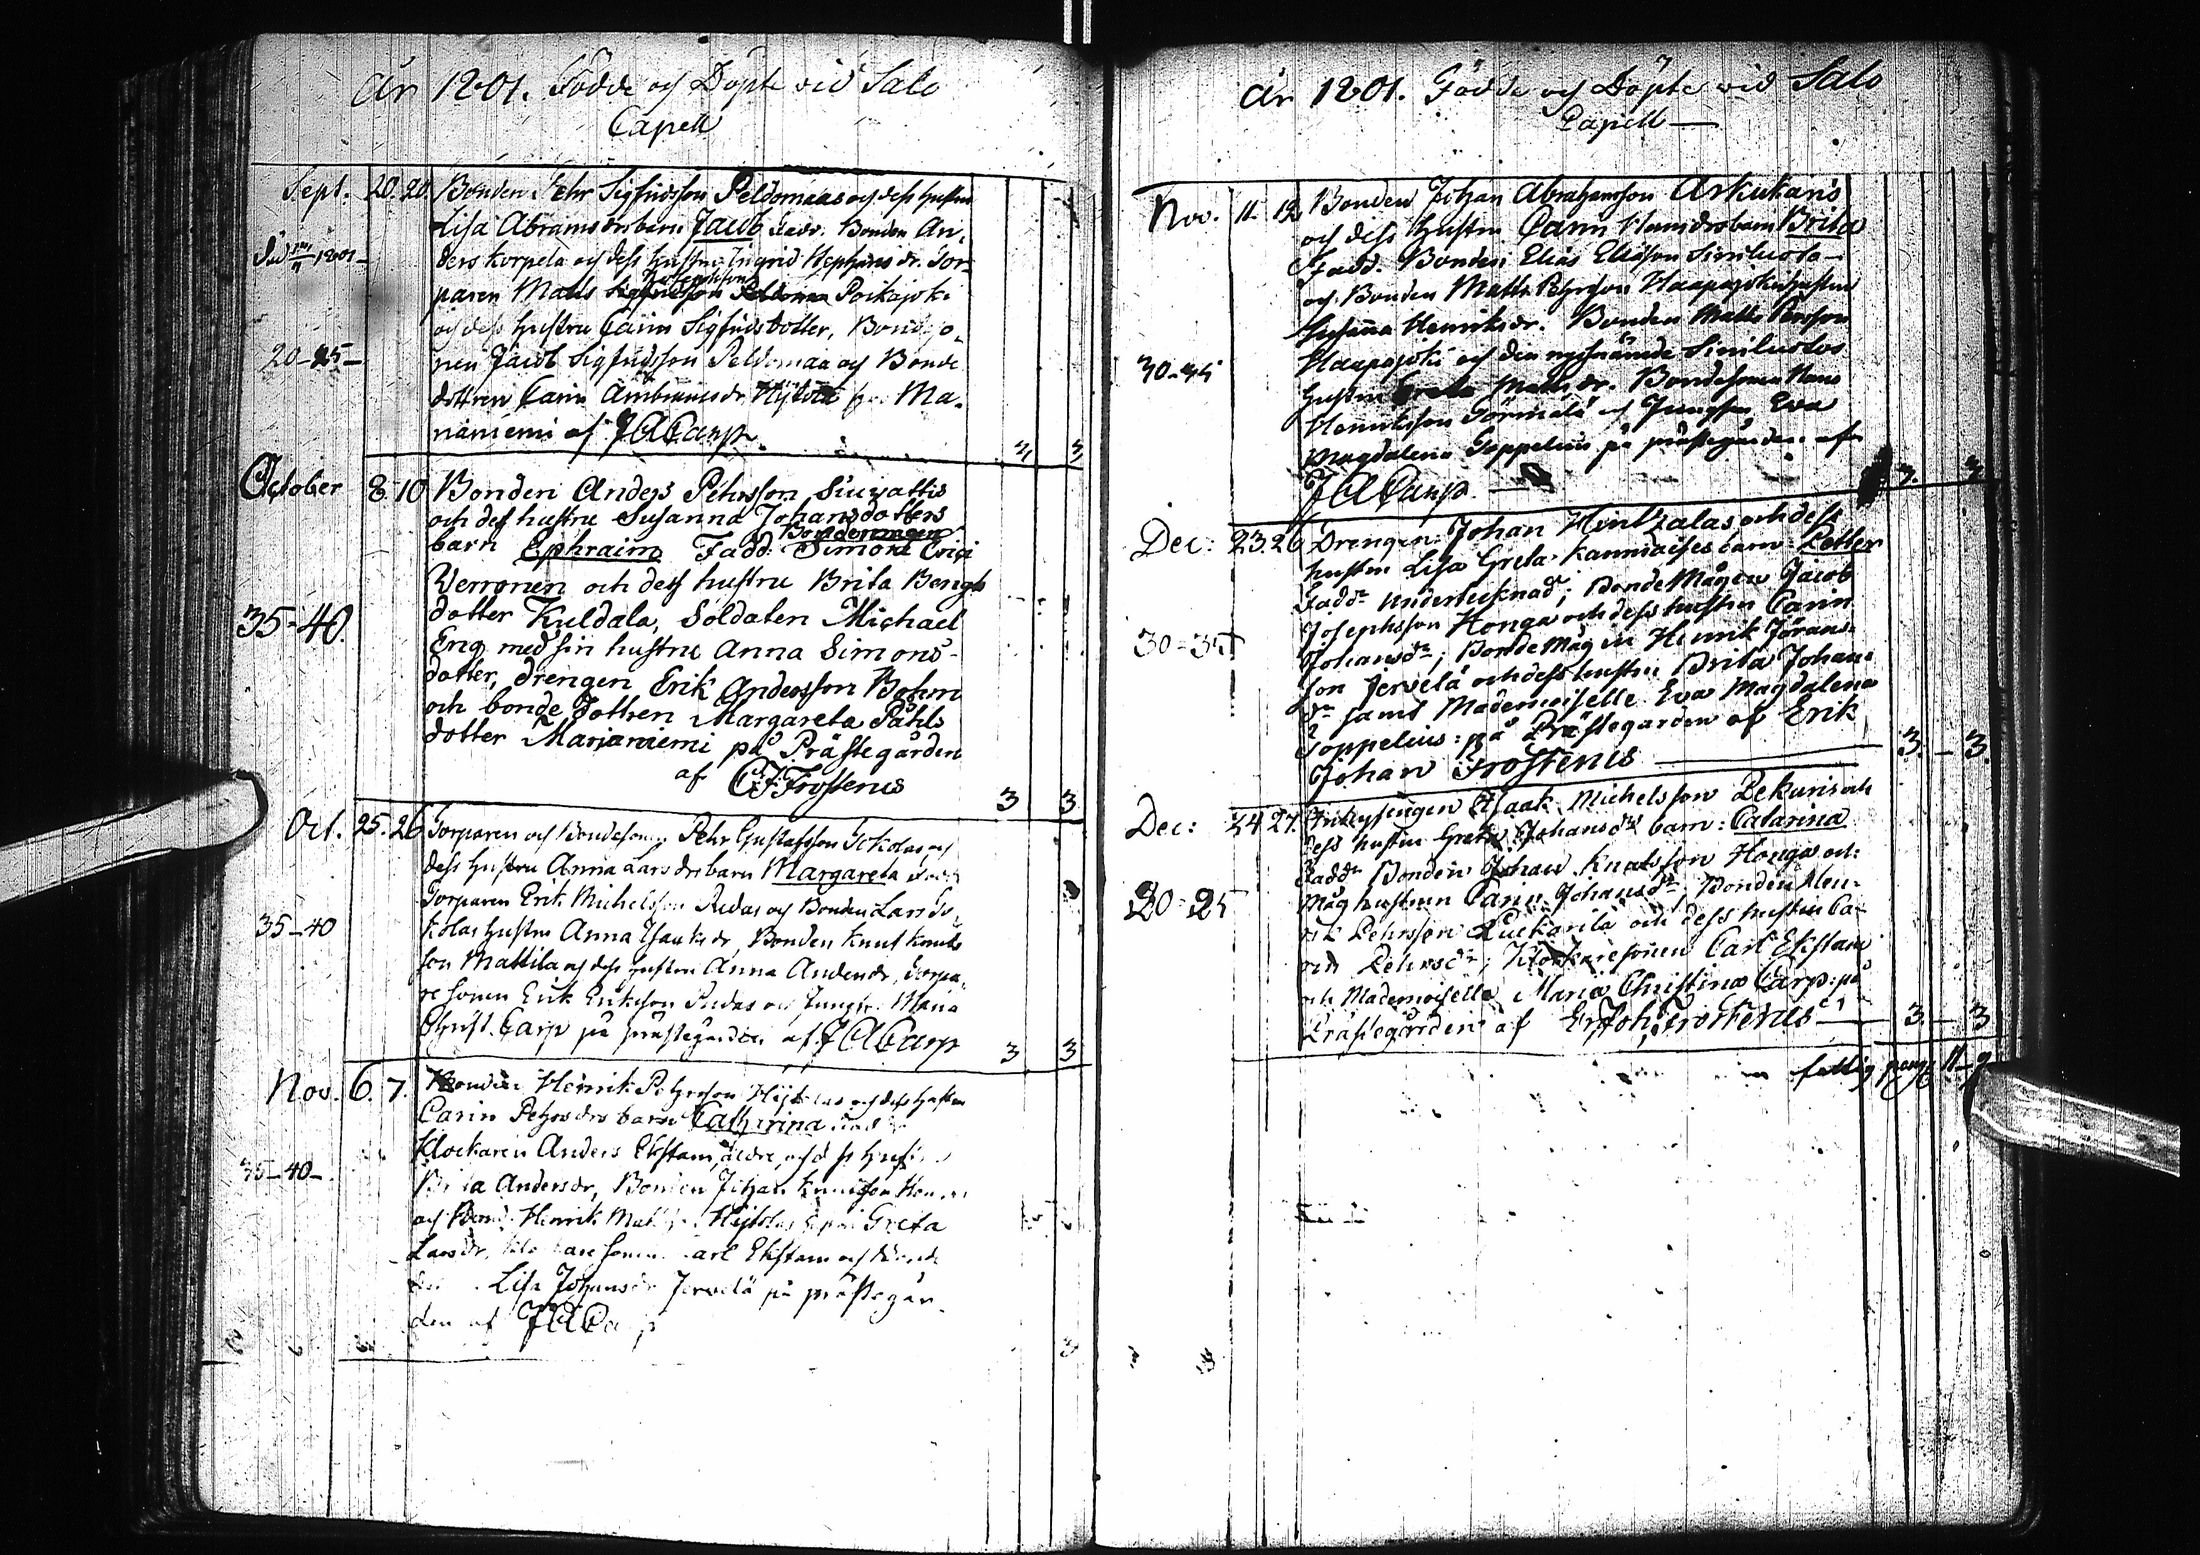 År 1801. Födde och Döpte vid Salo
Capell
Sept. 20. 20. Bonden Pehr Sigfridsson Peldomaas och dess hustru
Lisa Abramsdrs barn Jacob Fadd. Bonden An-
ders Korpela och dess hustru Ingrid Stephansdr. Tor-
paren Matts Poikajoki
och dess hustru Carin Sigfridsdotter, Bondeso-
nen Jacob Sigfridsson Peldomaa och Bonde
20-25- dottren Carin Ambrusdr på Ma-
naniemi af JACarp.
3 3
October 8 10 Bonden Anders Pehrsson Siuvattis
och dess hustru Susanna Johansdotters
Bondemågen
barn Ephraim Fadd: Simon Erici
Verronen och dess hustru Brita Bengts
35-40. dotter Kuldala, Soldaten Michael
Eng med sin hustru Anna Simons-
dotter, drengen Erik Andersson Bohm
och bonde dottren Margareta Påhls
dotter Marjaniemi på Prästegården
af EJFrosterus
3 3
Oct. 25. 26 Torparen och Bondesonen Pehr Gustafsson Tokolas och
dess hustru Anna Larsdrs barn Margareta Fadd
Torparen Erik Michelsson Pudas och Bonden Lars To-
35-40 kolas hustru Anna Isaksdr, Bonden Knut Knuts
son Mattila och dess hustru Anna Andersdr, Torpa-
re sonen Erik Eriksson Pudas och Jungfr. Maria
Christ. Carp på prästegården af JACarp
3 3
Nov. 6. 7. Bonden Henrik Pehrsson och dess hustru
Carin Pehrsdrs barn Catharina Fadd
Klockaren Anders Ekstam, äldre, och dess hustru
35-40- Brita Andersdr, Bonden Johan Knutsson
och Bond. Henrik Greta
Larsdr, sonen Carl Ekstam och
Lisa Johansdr Jervelä på prästegår-
den af JACarp
3
År 1801. Födde och Döpte vid Salo
Capell
Nov. 11. 12 Bonden Johan Abrahamsson Arkukaris
och dess hustru Carin barn Brita
Fadd. Bonden Elias Eliasson Siniluoto
och Bonden Matts Pehrsson Haapajoki hustru
Susanna Henriksdr. Bonden Matts Persson
30-35 Haapajoki och den nyssnämde Siniluotos
hustru Greta Mattsdr. Bondesonen Hans
Henriksson Törmälä och Jungfru Eva
Magdalena Toppelius på prästegården af
JACarp
3. 3.
Dec: 23. 26 Drengen Johan Hintzalas och dess
hustru Lisa Greta barn: Petter
Faddr Undertecknad; BondeMågen Jacob
Josephsson Honga och dess hustru Carin
30-35 Johansdr; BondeMågen Henrik Jörans-
son Jervelä och dess hustru Brita Johans
dr samt Mademoiselle Eva Magdalena
Toppelius: på Prästegården af Erik
Johan Frosterus
3. - 3.
Dec: 24 27. Isaak Michelsson Pekuris och
dess hustru Greta Johansdrs barn: Catarina
Faddr Bonden Johan Knutsson Honga och
20-25 Måg hustrun Carin Johansdr; Bonden Hen-
rik Pehrsson och dess hustru Ca-
rin Pehrsdr; Klockaresonen Carl Ekstam
och Mademoiselle Maria Christina Carp: på
Prästegården af Er Joh: Frosterus
3. - 3
fattig peng. 11